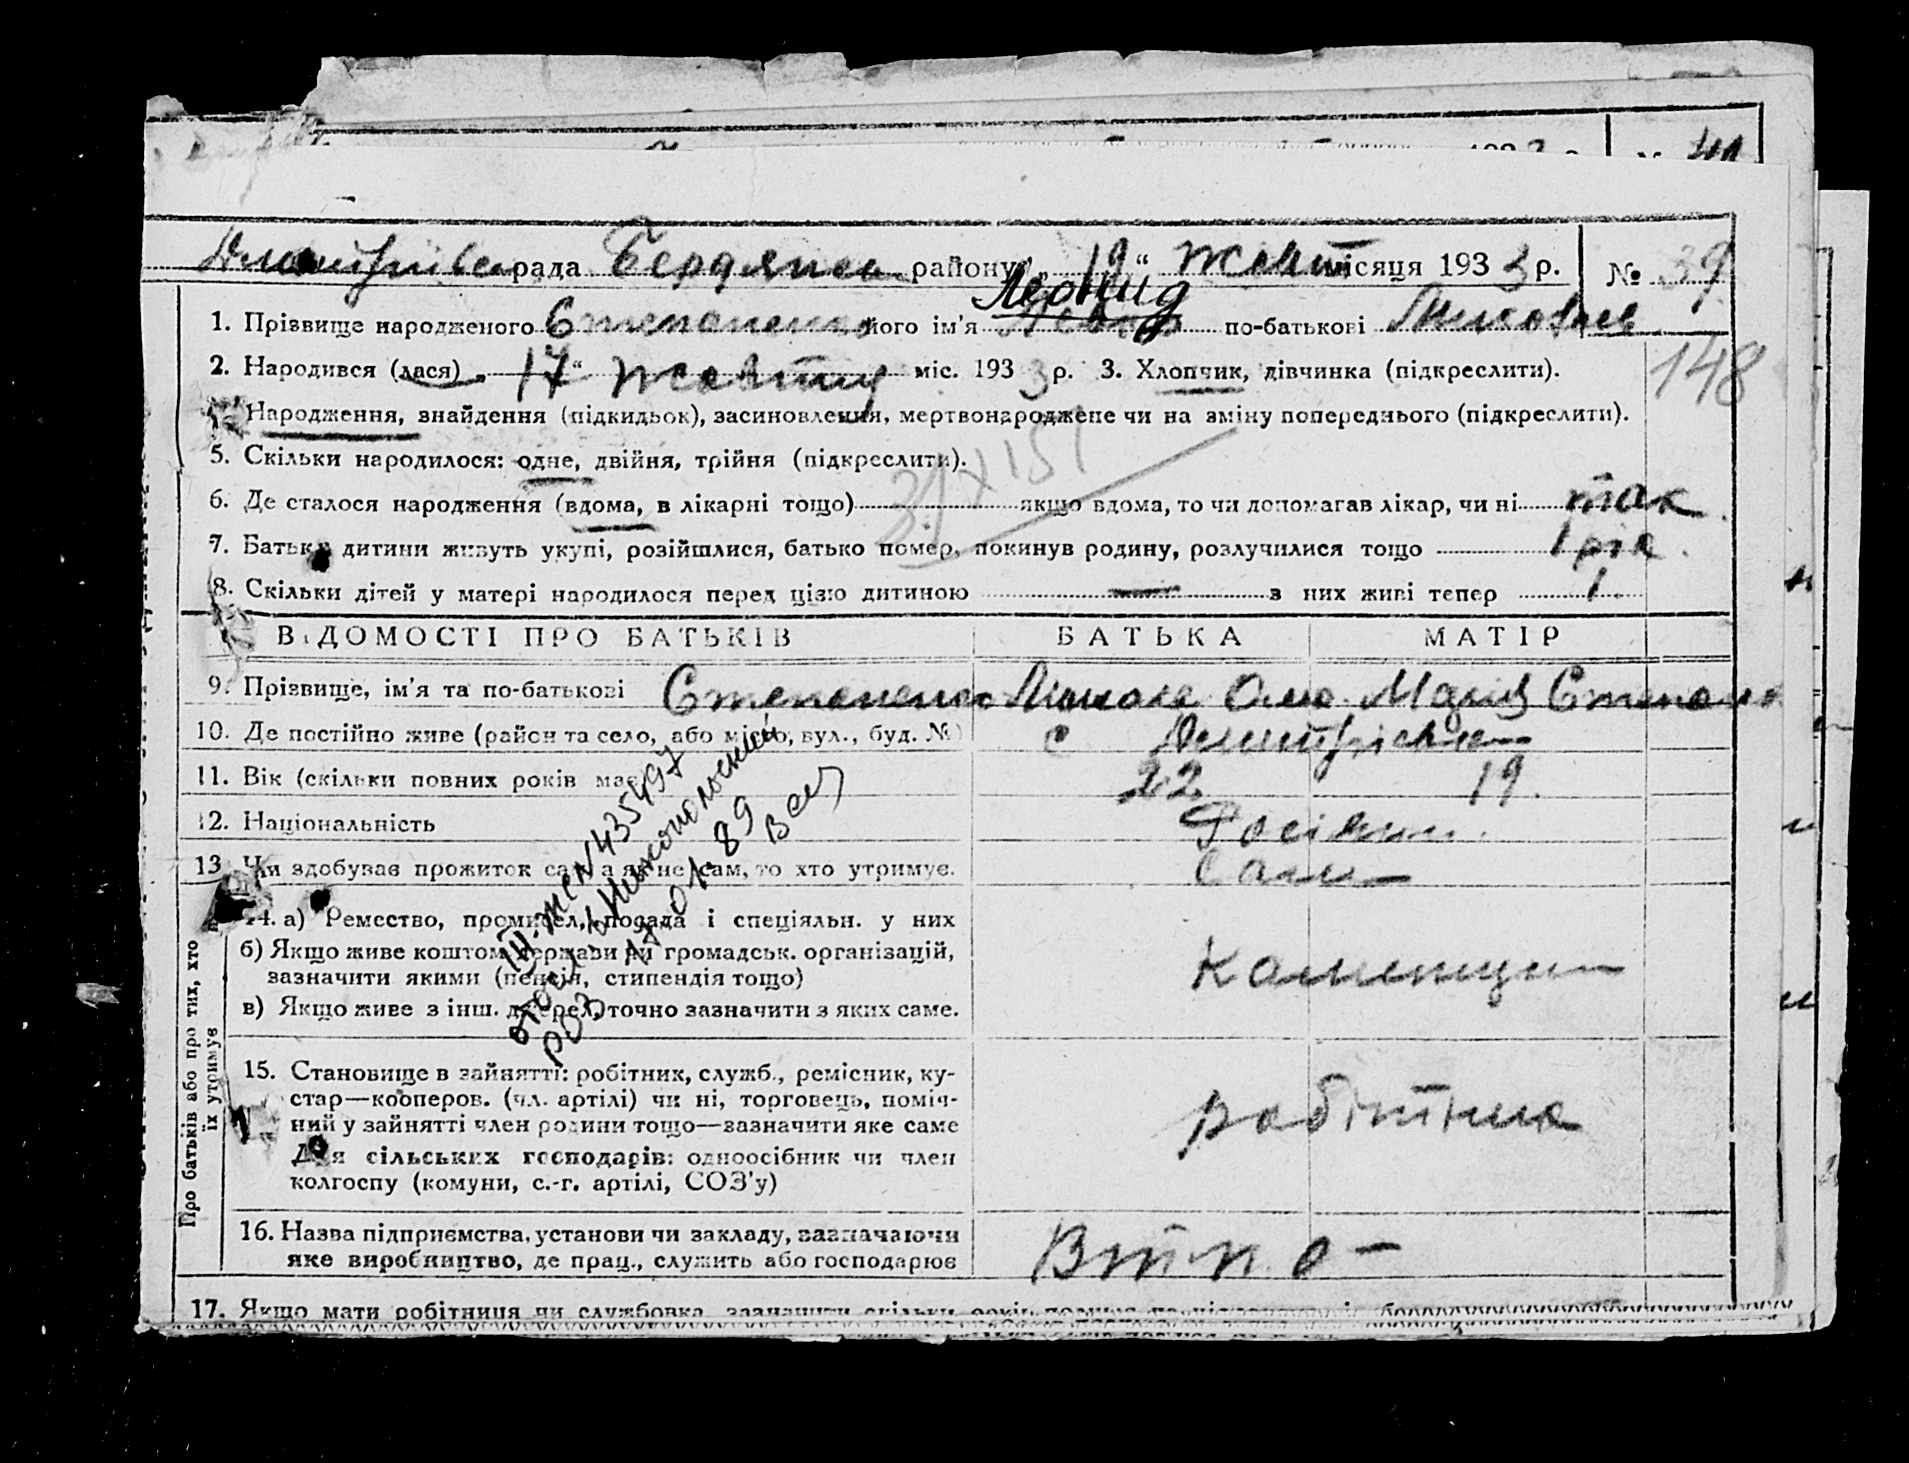 № 41
рада Бердянськ. району „ 19 “ Жовт місяця 193 3 р. № 39
Леонид
1. Прізвище народженого Степаненко його ім'я по-батькові Миколаев
2. Народився (лася) „ 17 “ жовтня міс. 193 3 р. 3. Хлопчик, дівчинка (підкреслити).
148
Народження, знайдення (підкидьок), засиновлення, мертвонароджене чи на зміну попереднього (підкреслити).
5. Скільки народилося: одне, двійня, трійня (підкреслити).
6. Де сталося народження (вдома, в лікарні тощо) якщо вдома, то чи допомагав лікар, чи ні так
7. Батьки дитини живуть укупі, розійшлися, батько помер, покинув родину, розлучилися тощо 1 рік.
8. Скільки дітей у матері народилося перед цією дитиною — з них живі тепер 1.
ВІДОМОСТІ ПРО БАТЬКІВ БАТЬКА МАТІР
9. Прізвище, ім'я та по-батькові Степаненко Микола Мария
10. Де постійно живе (район та село, або місто, вул., буд. №) с Дмитрівка
11. Вік (скільки повних років має 22 19.
12. Національність Росіяни.
13. Чи здобуває прожиток сам, а як не сам, то хто утримує. Сами
14. а) Ремество, промисел, посада і спеціяльн. у них
б) Якщо живе коштом держави чи громадськ. організацій,
зазначити якими (пенсія, стипендія тощо)
в) Якщо живе з інш. джерел, точно зазначити з яких саме.
15. Становище в зайнятті: робітник, служб., ремісник, ку-
стар—кооперов. (чл. артілі) чи ні, торговець, поміч-
ний у зайнятті член родини тощо—зазначити яке саме
Для сільських господарів: одноосібник чи член
колгоспу (комуни, с.-г. артілі, СОЗ'у)
робітник
16. Назва підприємства, установи чи закладу, зазначаючи
яке виробництво, де прац., служить або господарює
Про батьків або про тих, хто
їх утримує
17. Якщо мати робітниця чи службовка, зазначити скільки
III-ЖС №435497
17.01.89